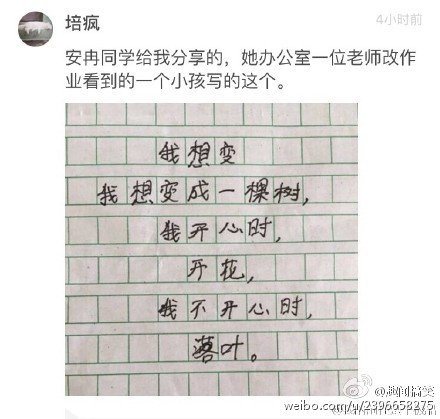 培疯
4小时前
安冉同学给我分享的，她办公室一位老师改作
业看到的一个小孩写的这个。
我想变
我想变成一棵树，
我开心时，
开花，
我不开心时，
落叶。
weibo.com/u/2396658275